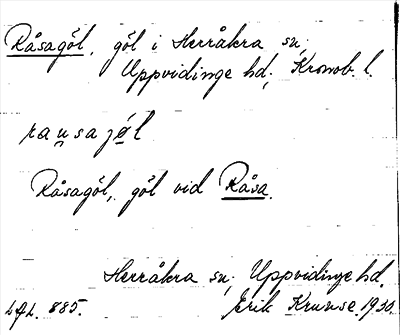 Råsagöl, göl i Herråkra sn,
Uppvidinge hd, Kronob. l.
Råsagöl, göl vid Råsa.
Herråkra sn, Uppvidinge hd.
885. Erik Kruuse. 1930.